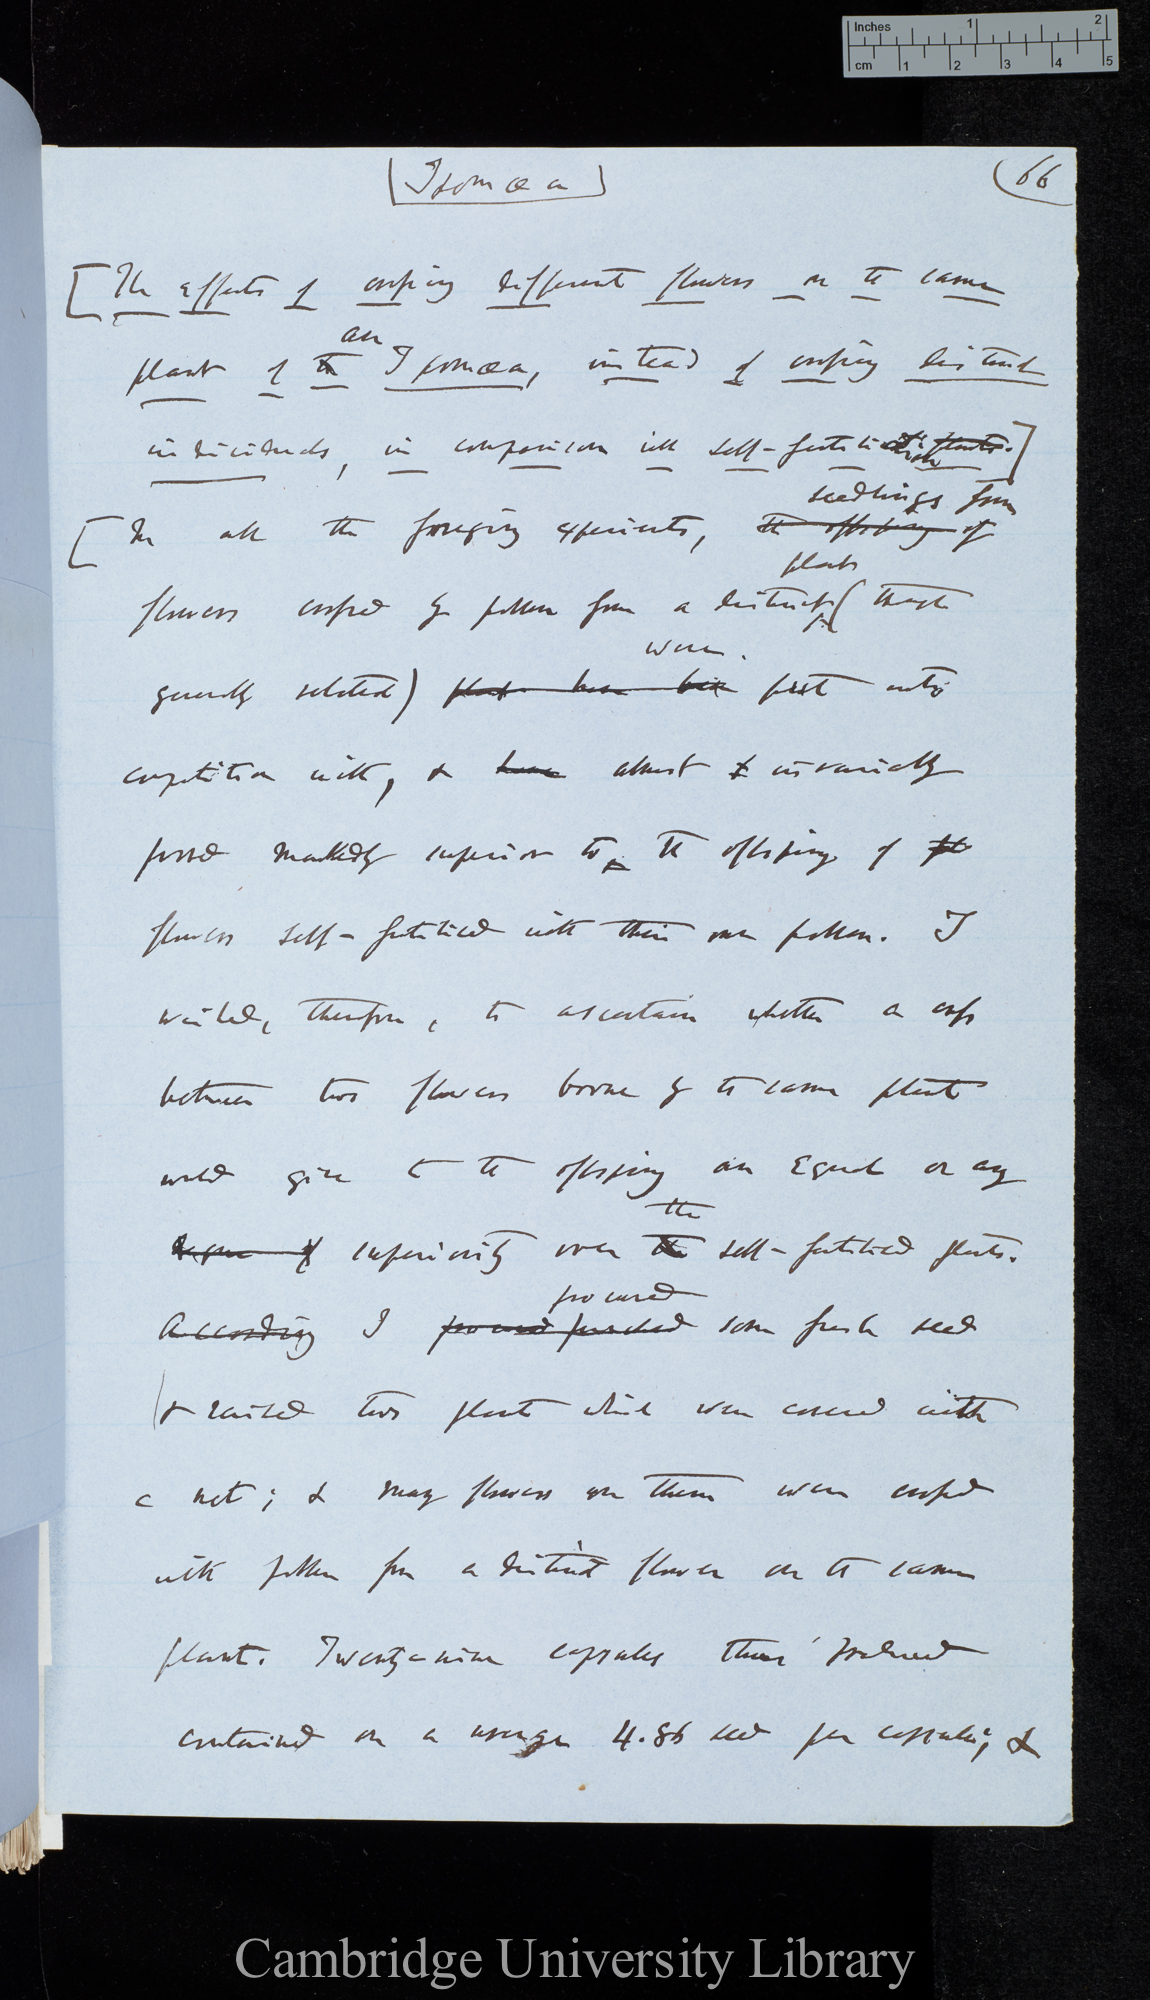 Inches 1 2
cm 1 2 3 4 5
[Ipomœa]
(66
[The effects of crossing different flowers on the same
an
plant of the Ipomœa, instead of crossing distinct
individuals, in comparison with self-fertilisation plants.]
seedlings from
[In all the foregoing experiments, the offspring of
plant
flowers crossed by pollen from a distinct (though
were
generally related) plant have been put into
competition with, & have almost invariably
proved markedly superior to, the offspring of
flowers self-fertilised with their own pollen. I
wished, therefore, to ascertain whether a cross
between two flowers borne by the same plant
would give to the offspring an equal or any
the
degree of superiority over the self-fertilised plants.
procured
According I procured purchased some fresh seed
& raised two plants which were covered with
a net; & many flowers on them were crossed
with pollen from a distinct flower on the same
plant. Twenty-nine capsules thus produced
contained on a average 4.86 seed per capsule; &
Cambridge University Library